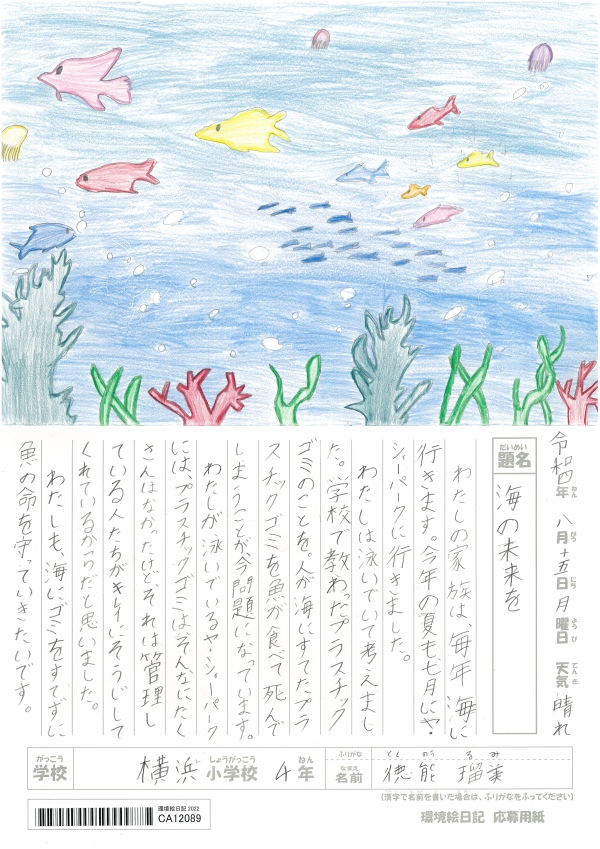 令和四年 八月十五日 月曜日 天気 晴れ
ねん がつ にち ようび てんき
だいめい
題名 海の未来を
わたしの家族は、毎年海に
行きます。今年の夏も七月にヤ・
シィーパークに行きました。
わたしは泳いでいて考えまし
た。学校で教わったプラスチック
ゴミのことを。人が海にすてたプラ
スチックゴミを魚が食べて死んで
しまうことが今問題になっています。
わたしが泳いでいるヤ・シィーパーク
には、プラスチックゴミはそんなにたく
さんはなかったけど、それは管理し
ている人たちがキレイにそうじして
くれているからだと思いました。
わたしも、海にゴミをすてずに
魚の命を守っていきたいです。
がっこう しょうがっこう ねん
学校 横浜 小学校 4年
ふりがな とくのう るみ
なまえ
名前 徳能 瑠美
(漢字で名前を書いた場合は、ふりがなをふってください)
環境絵日記 2022
CA12089
環境絵日記 応募用紙